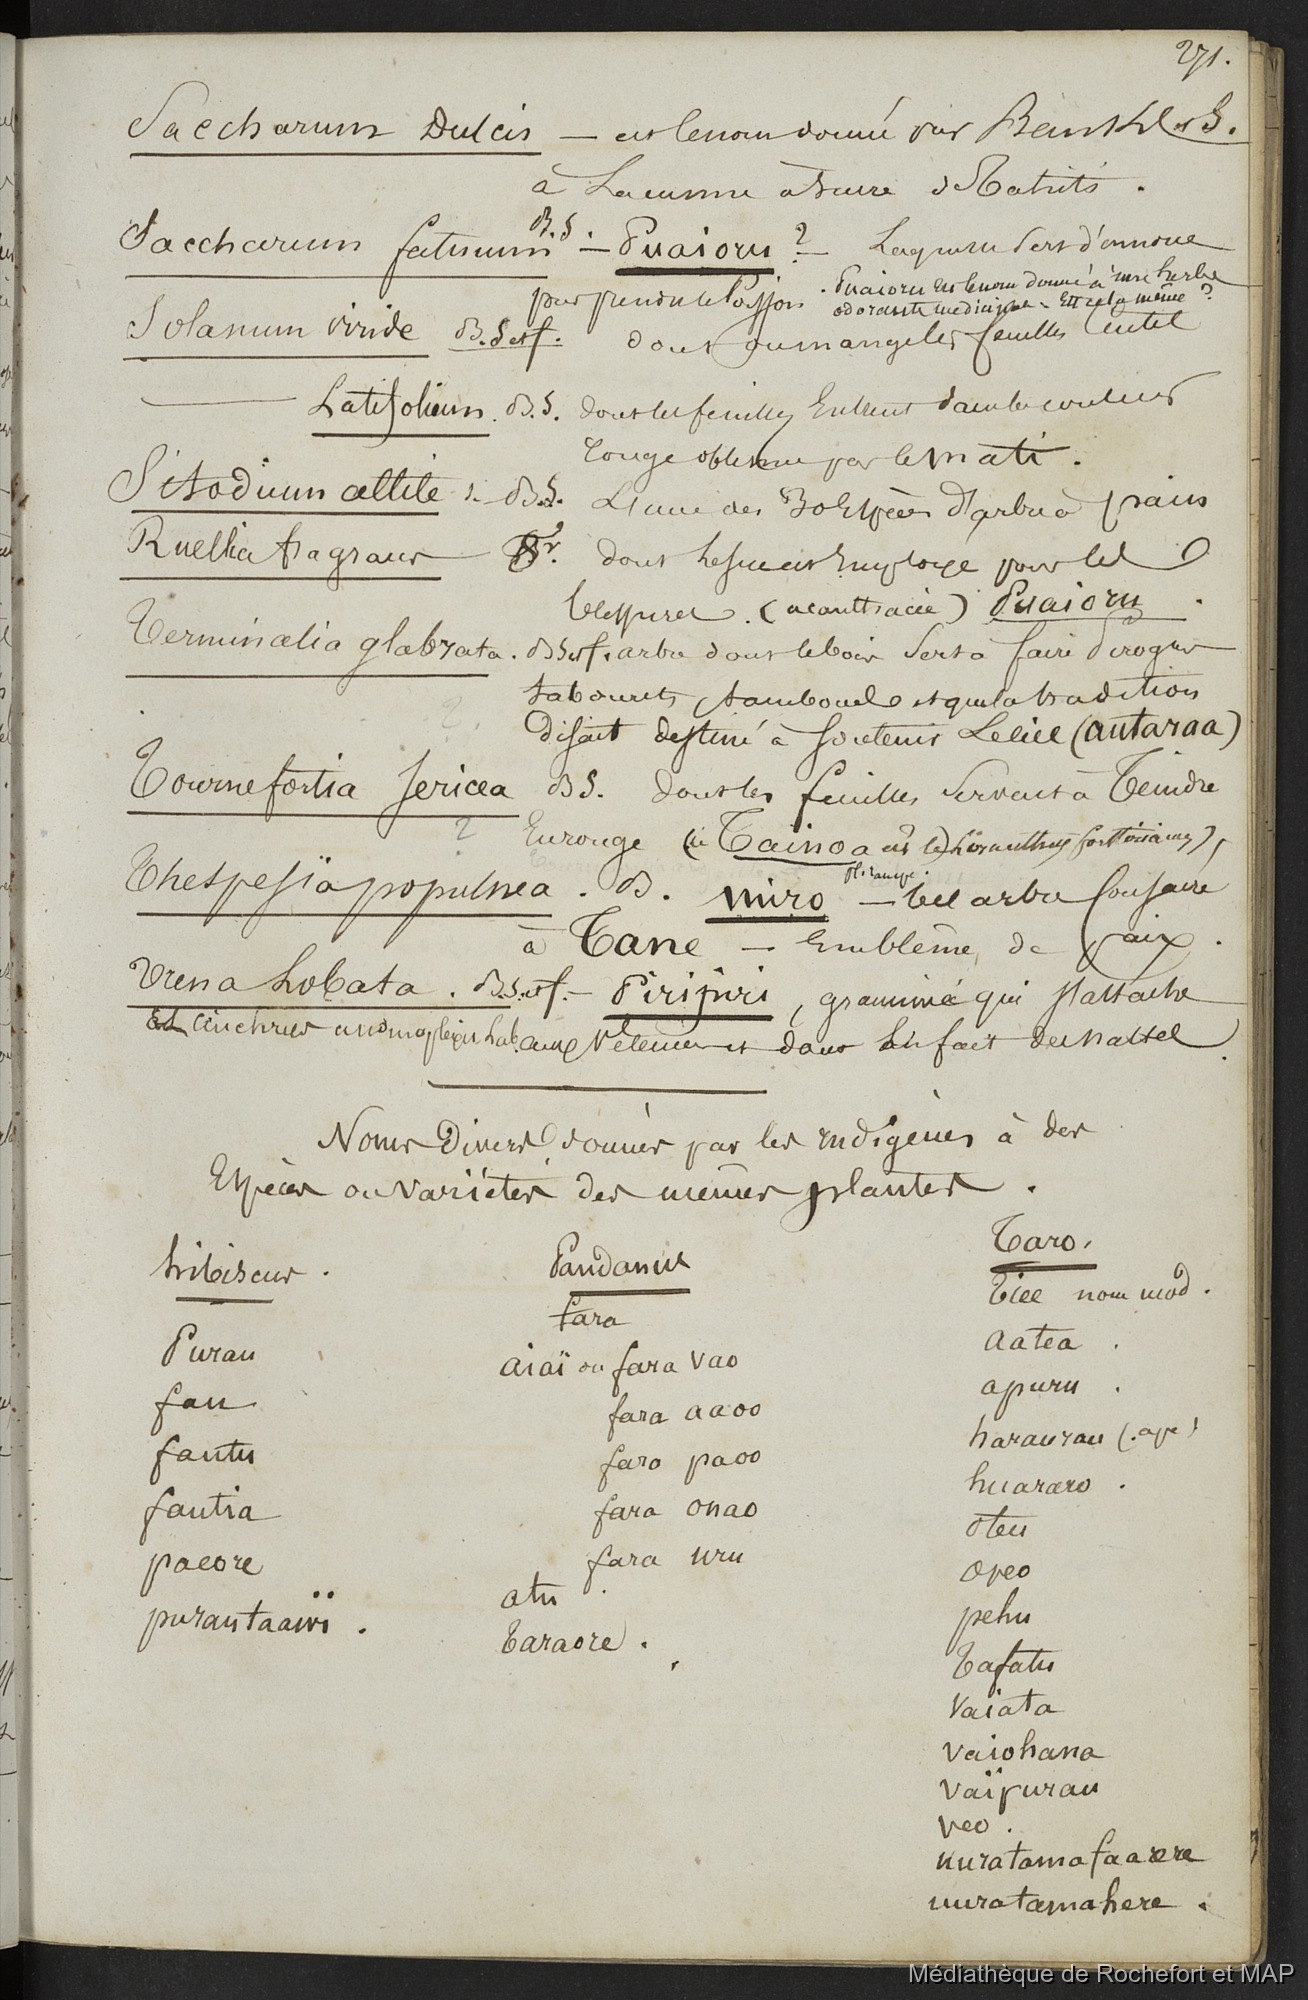 271.
Saccharum Dulcis — est le nom donné par Banks et S.
à la canne à sucre d'Otahiti.
Saccharum fatuum B.S. — Puaioru ? — Laquelle sert d'amorce
pour prendre le Poisson. Puaioru est le nom donné à une herbe
odorante médicinale. Est-ce la même ?
Solanum viride B.S et f. dont on mange les feuilles
——— Latifolium. B.S. dont les feuilles entrent dans la couleur
rouge obtenue par le mati.
Sitodium altile :- B.S. L'une des Espèces d'arbre à pain
Ruellia fragrans — dont le suc est employé pour les
blessures. (acanthacée) Puaioru.
Terminalia glabrata. B S et f. arbre dont le bois sert à faire pirogues
tabourets, tambours et que la tradition
disait destiné à soutenir Le ciel (autaraa)
Tournefortia sericea B S. dont les feuilles servent à Teindre
? En rouge (le Tainoa est le forsterianus),
Thespesia populnea. B. miro — bel arbre consacré
à Tane — Emblême de paix.
Urena Lobata. B.S. et f. — Piripiri, graminée qui s'attache
et Cinchrus anomoplexis Lab. aux vêtements et dont on fait des nattes
Noms Divers donnés par les indigènes à des
Espèces ou variétés des mêmes plantes.
hibiscus.
Purau
fau
fautu
fautia
paeore
purautaaivi.
Pandanus
fara
aiaï ou fara vao
fara aaoo
fara paoo
fara onao
fara uru
atu
Taraore.
Taro.
Tiee nom mod.
aatea.
apuru.
haraurau (.ape)
huararo.
oteu
opeo
pehu
Tafatu
Vaiata
vaiohana
vaïpurau
veo.
uuratamafaarere
uuratamahere.
Médiathèque de Rochefort et MAP